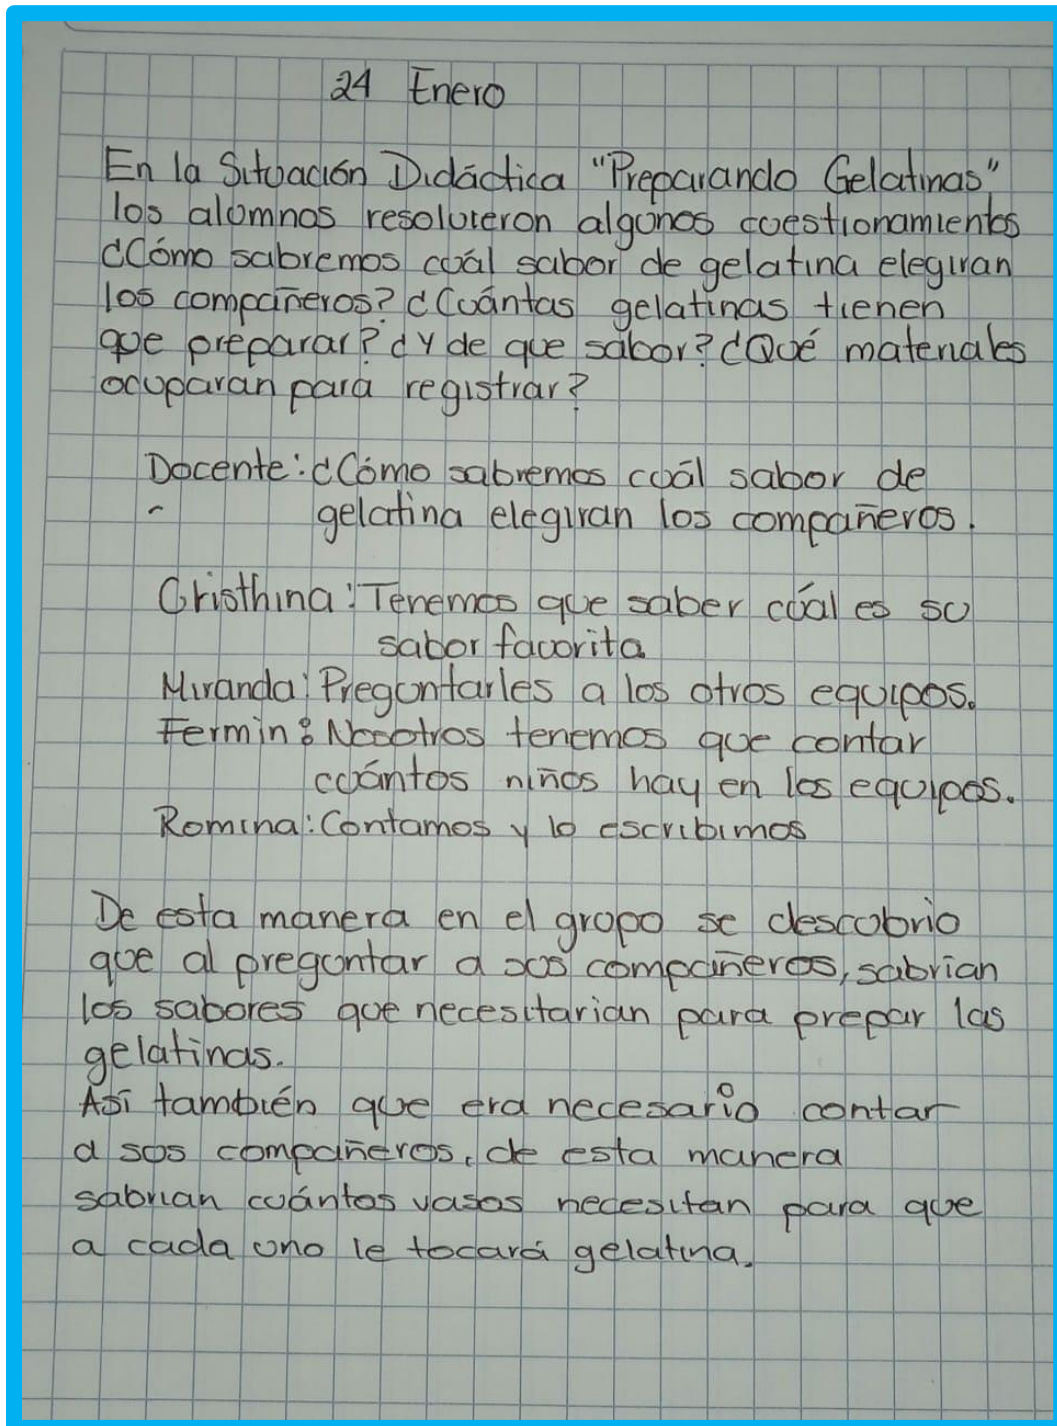 24 Enero
En la Situación Didáctica "Preparando Gelatinas"
los alumnos resolvieron algunos cuestionamientos
¿Cómo sabremos cuál sabor de gelatina elegiran
los compañeros? ¿Cuántas gelatinas tienen
que preparar? ¿Y de que sabor? ¿Qué materiales
ocuparan para registrar?
Docente: ¿Cómo sabremos cuál sabor de
gelatina elegiran los compañeros.
Cristhina: Tenemos que saber cúal es su
sabor favorita
Miranda: Preguntarles a los otros equipos.
Fermin: Nosotros tenemos que contar
cuántos niños hay en los equipos.
Romina: Contamos y lo escribimos
De esta manera en el grupo se descubrio
que al preguntar a sus compañeros, sabrian
los sabores que necesitarian para prepar las
gelatinas.
Así también que era necesario contar
a sus compañeros, de esta manera
sabrian cuántos vasos necesitan para que
a cada uno le tocará gelatina.